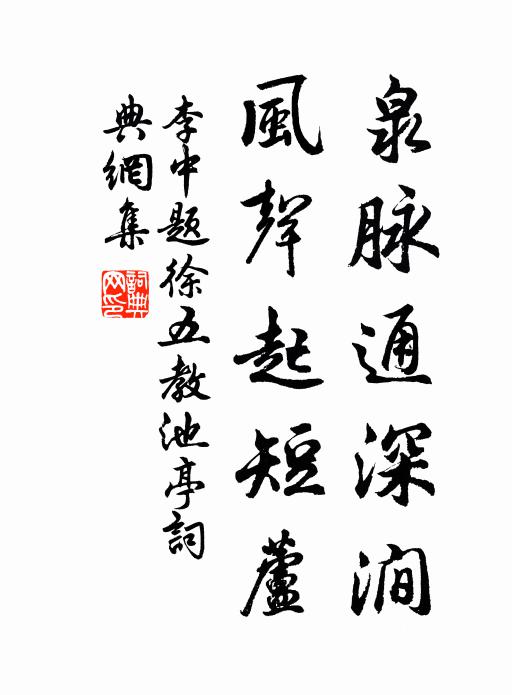 泉脉通深澗
風聲起短蘆
李中題徐五教池亭詞
典網集
詞典
网印